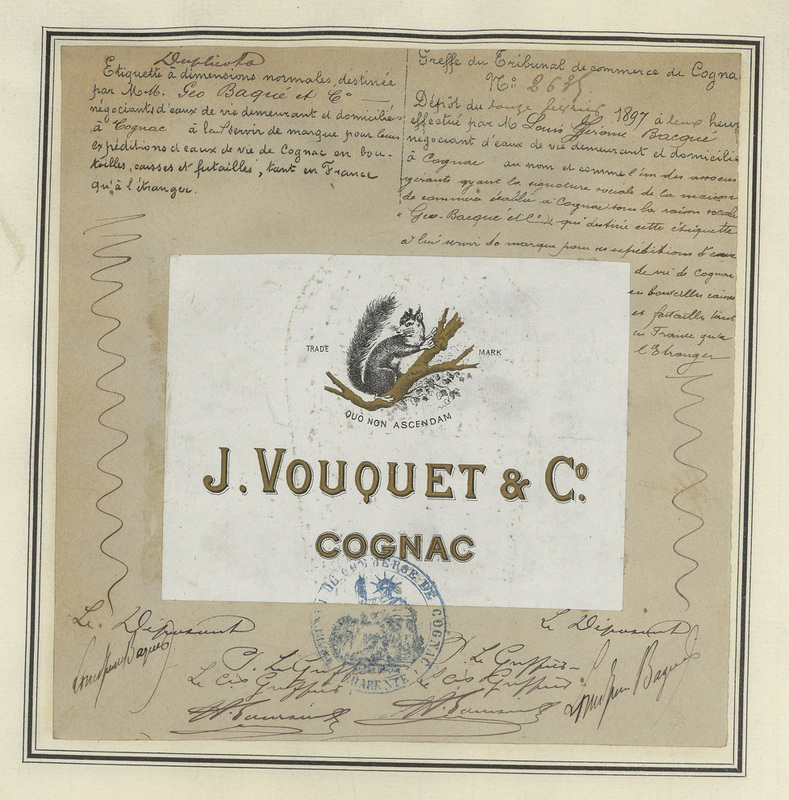 Duplicata
Etiquette à dimensions normales, destinée
par M.M. Geo Baqué et Cº
négociants d'eaux de vie demeurant et domiciliés
à Cognac à la servir de marque pour leurs
expéditions d'eaux de vie de Cognac en bou-
teilles, caisses et futailles, tant en France
qu'à l'étranger.
Greffe du Tribunal de commerce de Cogna
Nº: 2635
Dépôt du douze février 1897 à deux heures
effectué par M Louis Jérome Bacqué
négociant d'eaux de vie demeurant et domicilié
à Cognac au nom et comme l'un des associés
gérants ayant la signature sociale de la maison
de commerce établie à Cognac sous la raison sociale
"Geo-Bacqué et Cº" qui destine cette étiquette
à lui servir de marque pour ses expéditions d'eaux
de vie de Cognac
en bouteilles caisses
et futailles tant
en France qu'a
l'Etranger
TRADE MARK
QUÒ NON ASCENDAM
J. VOUQUET & Cº.
COGNAC
DE COMMERCE DE COGNAC
CHARENTE
Le Déposant
Le Déposant
P. Le Greffier
Le Cis Greffier
P. Le Greffier
Le Cis Greffier